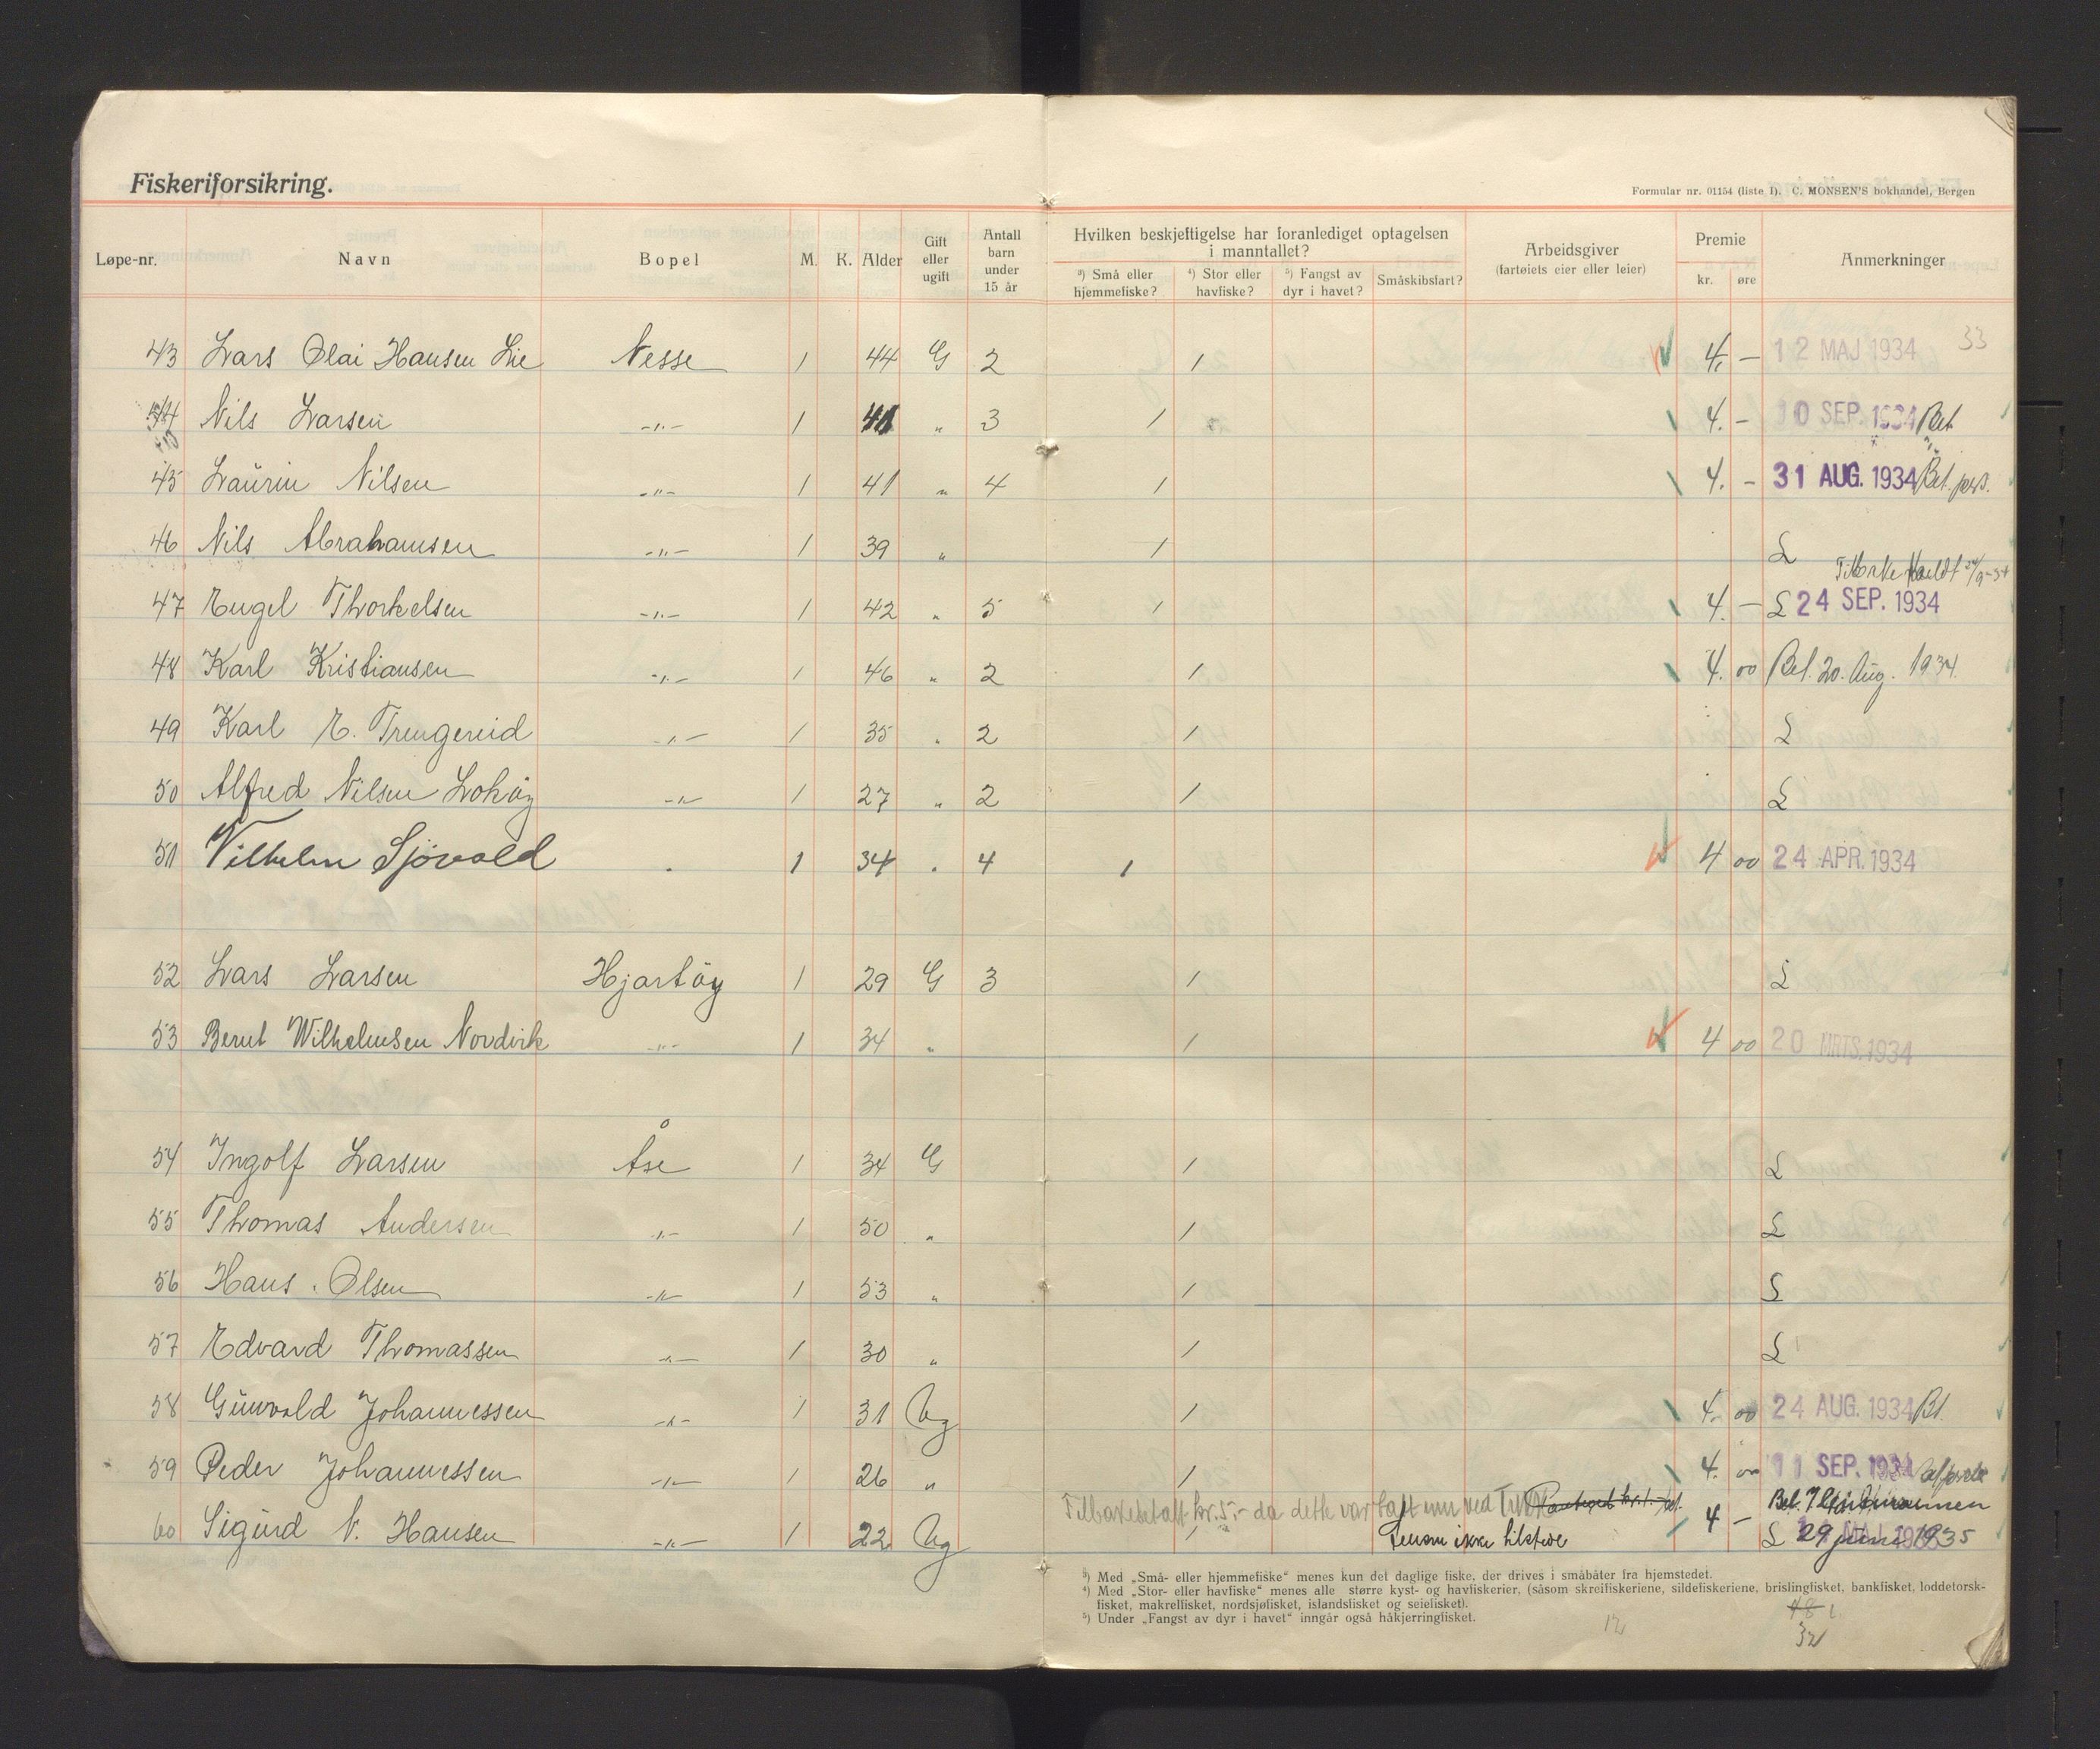 Fiskeriforsikring.
Formular nr. 01154 (liste I). C. MONSEN'S bokhandel, Bergen
Løpe-nr. Navn Bopel M. K. Alder Gift eller ugift Antall barn under 15 år Hvilken beskjeftigelse har foranlediget optagelsen i manntallet? ³) Små eller hjemmefiske? ⁴) Stor eller havfiske? ⁵) Fangst av dyr i havet? Småskibsfart? Arbeidsgiver (fartøiets eier eller leier) Premie kr. øre Anmerkninger
33
43 Lars Olai Hansen Lie Nesse 1 44 G 2 1 4. — 12 MAJ 1934
44 Nils Larsen -"- 1 41 " 3 1 4. - 10 SEP. 1934 Bet.
45 Laurin Nilsen -"- 1 41 " 4 1 4. - 31 AUG. 1934 Bet. pers.
46 Nils Abrahamsen -"- 1 39 " 1 L
47 Engel Thorkelsen -"- 1 42 " 5 1 4. — L 24 SEP. 1934
48 Karl Kristiansen -"- 1 46 " 2 1 4. 00 Bet. 20. Aug. 1934.
49 Karl E. Trengereid -"- 1 35 " 2 1 L
50 Alfred Nilsen Lokøy -"- 1 27 " 2 1 L
51 Vilhelm Sjövold " 1 34 " 4 1 4 00 24 APR. 1934
52 Lars Larsen Hjartøy 1 29 G 3 1 L
53 Bernt Wilhelmsen Nordvik -"- 1 34 " 1 4 00 20 MRTS. 1934
54 Ingolf Larsen Åse 1 34 G 1 L
55 Thomas Andersen -"- 1 50 " 1 L
56 Hans Olsen -"- 1 53 " 1 L
57 Edvard Thomassen -"- 1 30 " 1 L
58 Gunvald Johannessen -"- 1 31 Ug 1 4. 00 24 AUG. 1934 Bt.
59 Peder Johannessen -"- 1 26 " 1 4. 00 11 SEP. 1934
Tilbakebetalt kr. 5,- da dette var tatt inn ved
60 Sigurd N. Hansen -"- 1 22 Ug 1 ikke tilstede 4 - L 29 juni 1935
³) Med „Små- eller hjemmefiske“ menes kun det daglige fiske, der drives i småbåter fra hjemstedet.
⁴) Med „Stor- eller havfiske“ menes alle større kyst- og havfiskerier, (såsom skreifiskeriene, sildefiskeriene, brislingfisket, bankfisket, loddetorsk-
fisket, makrellfisket, nordsjøfisket, islandsfisket og seiefisket).
⁵) Under „Fangst av dyr i havet“ inngår også håkjerringfisket.
12
48
32